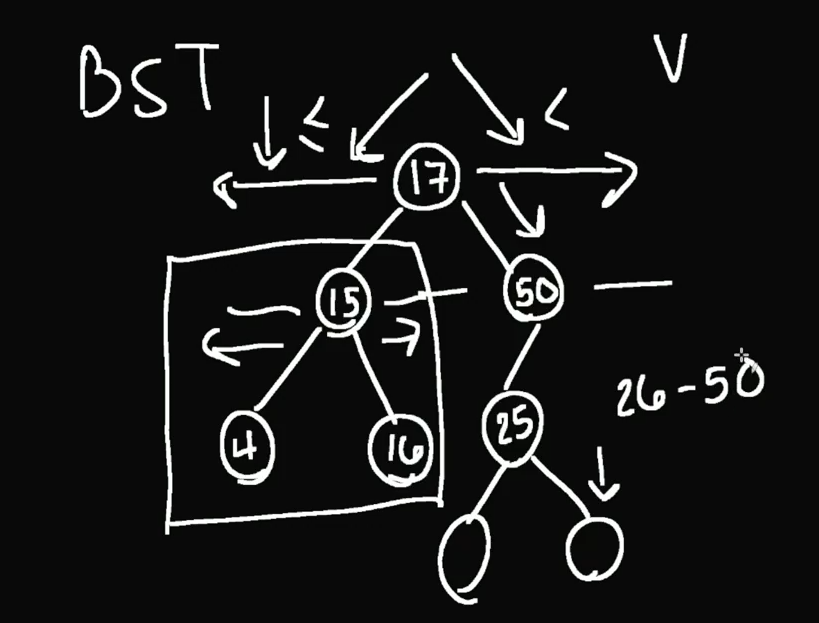 BST
V
≤
<
17
15
50
4
16
25
26-50